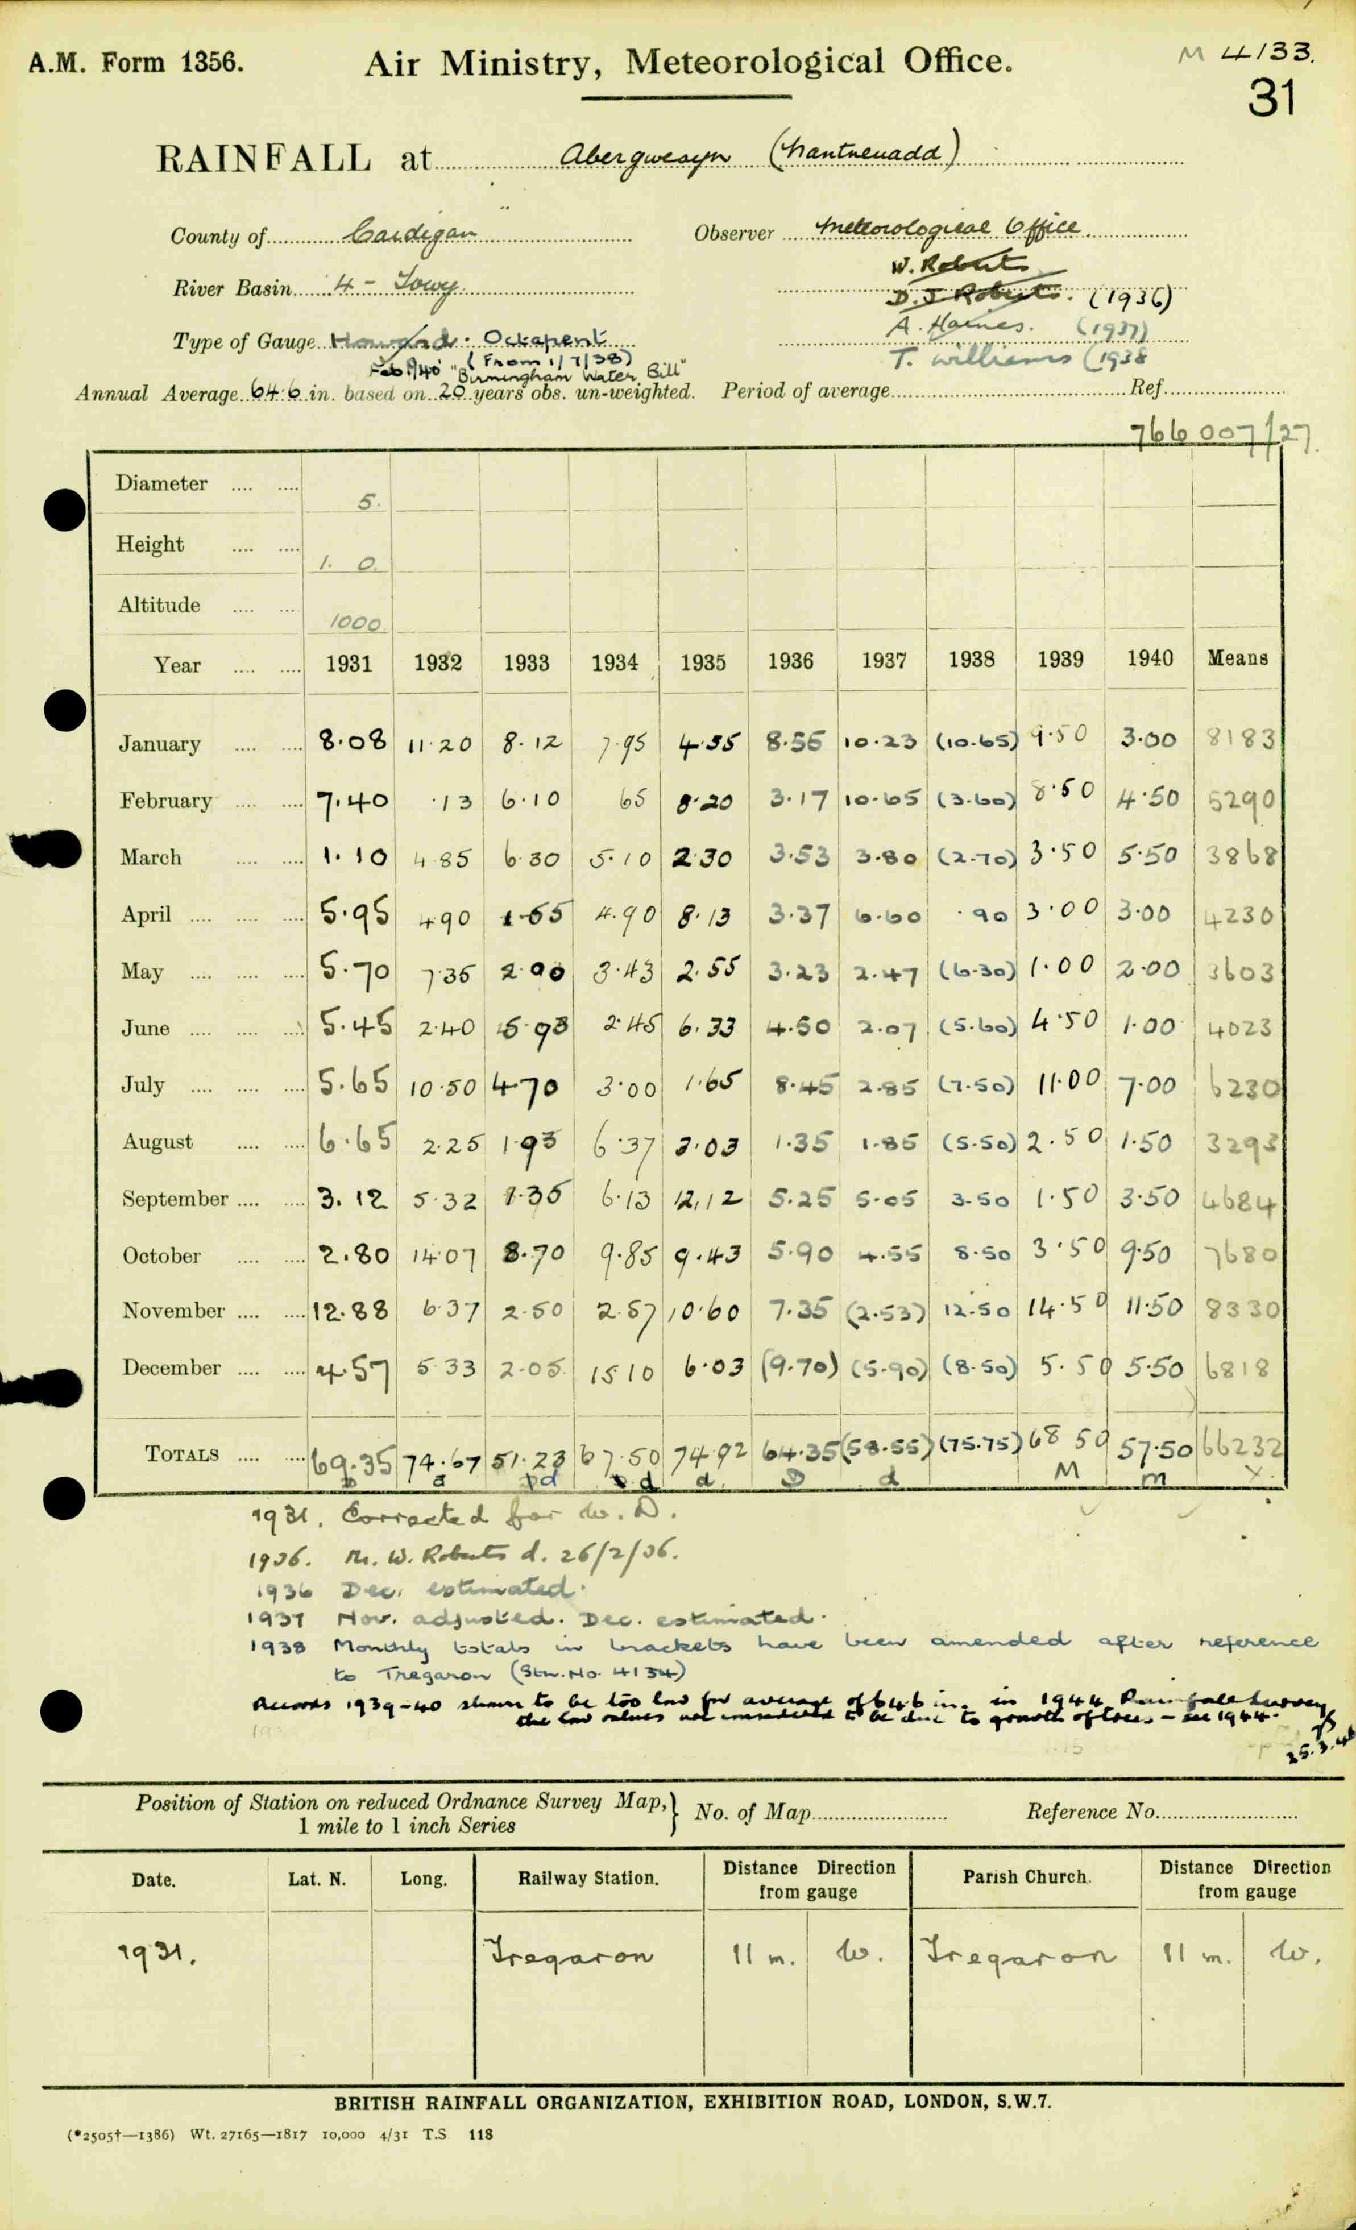 A.M. Form 1356. Air Ministry, Meteorological Office. M 4133.
31
RAINFALL at Abergwesyn (Nantneuadd)
County of Cardigan Observer Meteorological Office
W. Roberts
River Basin 4 - Towy. D. J Roberts. (1936)
Type of Gauge Howard. Octapent A. Haines. (1937)
(From 1/7/38) T. Williams (1938
Feb 9/40 "Birmingham Water Bill"
Annual Average 64.6 in. based on 20 years obs. un-weighted. Period of average Ref.
766 007/27.
Diameter .... .... 5.
Height .... .... 1. 0
Altitude .... .... 1000
Year .... .... 1931 1932 1933 1934 1935 1936 1937 1938 1939 1940 Means
January .... .... 8.08 11.20 8.12 7.95 4.55 8.55 10.23 (10.65) 9.50 3.00 8183
February .... .... 7.40 .13 6.10 65 8.20 3.17 10.65 (3.60) 8.50 4.50 5290
March .... .... 1.10 4.85 6.30 5.10 2.30 3.53 3.80 (2.70) 3.50 5.50 3868
April .... .... .... 5.95 4.90 1.55 4.90 8.13 3.37 6.60 .90 3.00 3.00 4230
May .... .... .... 5.70 7.35 2.00 3.43 2.55 3.23 2.47 (6.30) 1.00 2.00 3603
June .... .... .... 5.45 2.40 5.93 2.45 6.33 4.50 2.07 (5.60) 4.50 1.00 4023
July .... .... .... 5.65 10.50 4.70 3.00 1.65 8.45 2.85 (7.50) 11.00 7.00 6230
August .... .... 6.65 2.25 1.93 6.37 3.03 1.35 1.85 (5.50) 2.50 1.50 3293
September .... .... 3.12 5.32 1.35 6.13 12.12 5.25 5.05 3.50 1.50 3.50 4684
October .... .... 2.80 14.07 8.70 9.85 9.43 5.90 4.55 8.50 3.50 9.50 7680
November .... .... 12.88 6.37 2.50 2.57 10.60 7.35 (2.53) 12.50 14.50 11.50 8330
December .... .... 4.57 5.33 2.05 15.10 6.03 (9.70) (5.90) (8.50) 5.50 5.50 6818
TOTALS .... .... 69.35 74.67 51.23 67.50 74.92 64.35 (58.55) (75.75) 68 50 57.50 66232
d d d d D d M m x
1931. Corrected for W. D.
1936. Mr. W. Roberts d. 26/2/36.
1936 Dec. estimated.
1937 Nov. adjusted. Dec. estimated.
1938 Monthly totals in brackets have been amended after reference
to Tregaron (Stn. No. 4134)
Records 1939-40 shown to be too low for average of 64.6 in. in 1944 Rainfall Survey
the low values not considered to be due to growth of trees - see 1944.
25.3.46
Position of Station on reduced Ordnance Survey Map,} No. of Map Reference No.
1 mile to 1 inch Series
Date. Lat. N. Long. Railway Station. Distance Direction from gauge Parish Church. Distance Direction from gauge
1931. Tregaron 11 m. W. Tregaron 11 m. W.
BRITISH RAINFALL ORGANIZATION, EXHIBITION ROAD, LONDON, S.W.7.
(*2505†—1386) Wt. 27165—1817 10,000 4/31 T.S 118